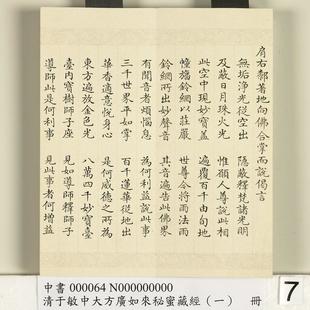 肩右鄰著地向佛合掌而說偈言
無垢淨光從空出　隱蔽釋梵諸光明
及蔽日月珠火光　惟願人尊說此相
此空中現妙寶蓋　遍覆百千由旬地
幢旛鈴網以莊嚴　世尊今將雨法雨
鈴網所出妙聲音　其音遍告此佛界
有聞音者煩惱息　為何利益說此事
三千世界平如掌　百千蓮華從地出
華香適意悅身心　是何威德之所為
東方遍放金色光　八萬四千妙寶臺
臺內寶樹師子座　見如導師釋師子
導師此是何利事　見此事者何增益
中書 000064 N000000000
清于敏中大方廣如來秘蜜藏經（一）　冊
7